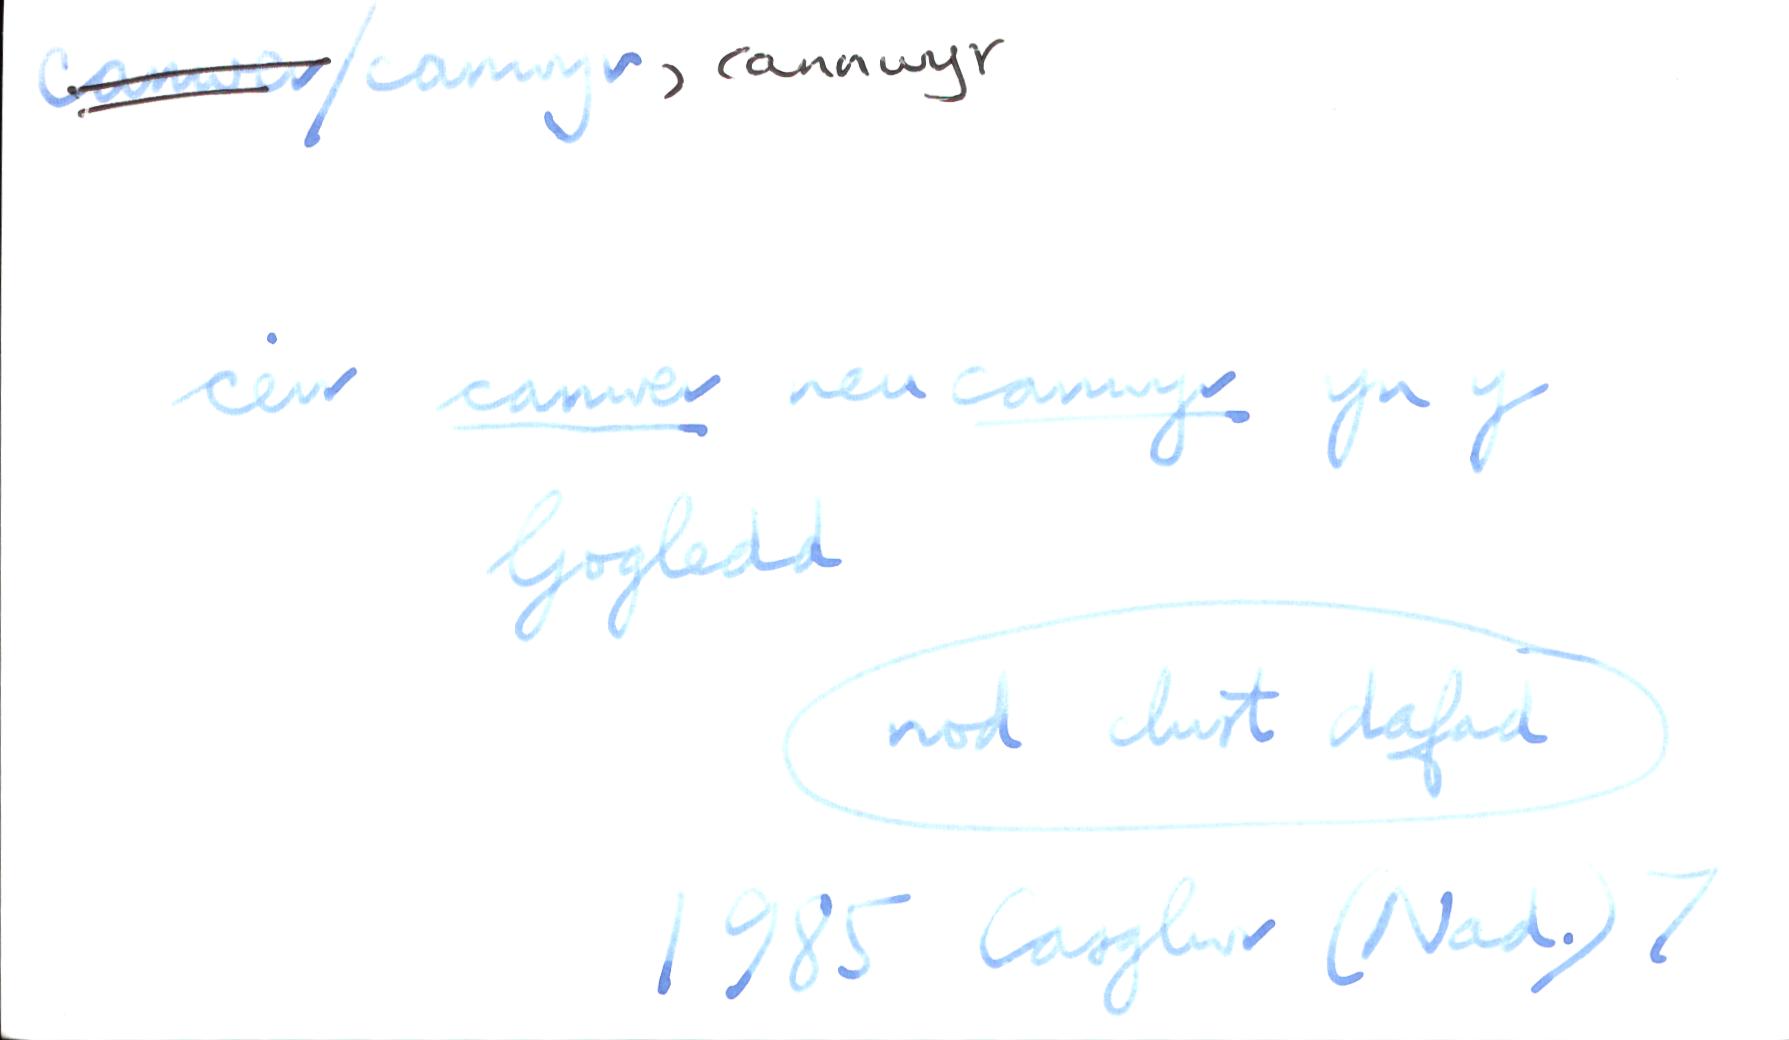 canwer/canwyr, cannwyr
ceir canwer neu canwyr yn y
Gogledd
nod clust dafad
1985 Casglwr (Nad.) 7